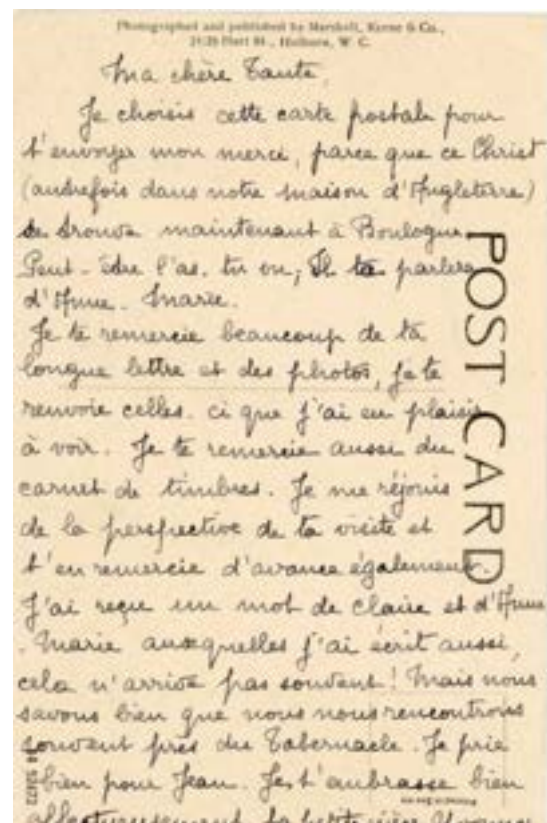 Photographed and published by Marshall, Keene & Co.,
Hart St., Holborn, W. C.
Ma chère Tante,
Je choisis cette carte postale pour
t'envoyer mon merci, parce que ce Christ
(autrefois dans notre maison d'Angleterre)
se trouve maintenant à Boulogne.
Peut-être l'as-tu vu; Il te parlera
d'Anne-Marie.
Je te remercie beaucoup de ta
longue lettre et des photos, je te
renvoie celles-ci que j'ai eu plaisir
à voir. Je te remercie aussi du
carnet de timbres. Je me réjouis
de la perspective de ta visite et
t'en remercie d'avance également.
J'ai reçu un mot de Claire et d'Anne
-Marie auxquelles j'ai écrit aussi,
cela n'arrive pas souvent! Mais nous
savons bien que nous nous rencontrons
souvent près du Tabernacle. Je prie
bien pour Jean. Je t'embrasse bien
affectueusement, ta petite nièce Yvonne
POST CARD